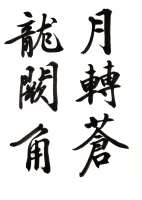 月轉蒼
龍闕角